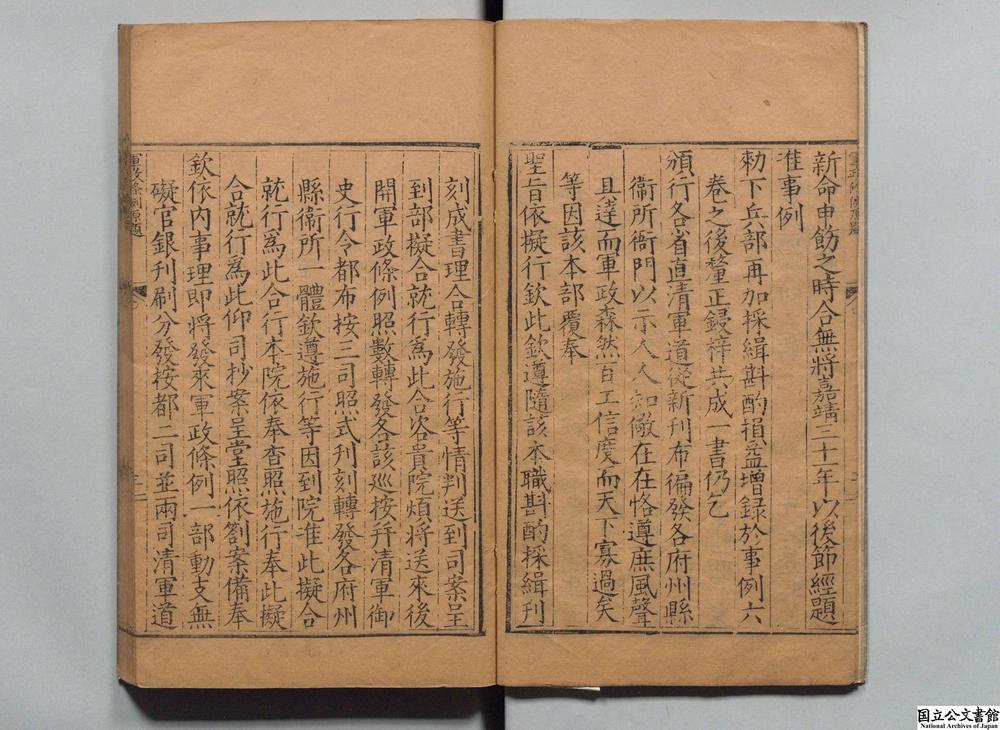 新命申飭之時合無將嘉靖三十年以後節經題
准事例
勑下兵部再加採緝斟酌損益增録於事例六
卷之後釐正鋟梓共成一書仍乞
頒行各省直清軍道從新刊布徧發各府州縣
衞所衙門以示人人知儆在在恪遵庶風聲
且達而軍政森然百工信度而天下寡過矣
等因該本部覆奉
聖旨依擬行欽此欽遵隨該本職斟酌採緝刊
刻成書理合轉發施行等情判送到司案呈
到部擬合就行爲此合咨貴院煩將送來後
開軍政條例照數轉發各該巡按幷清軍御
史行令都布按三司照式刊刻轉發各府州
縣衞所一體欽遵施行等因到院准此擬合
就行爲此合行本院依奉查照施行奉此擬
合就行爲此仰司抄案呈堂照依劄案備奉
欽依内事理即將發來軍政條例一部動支無
礙官銀刊刷分發按都二司並兩司清軍道
軍政條例原題
国立公文書館
National Archives of Japan